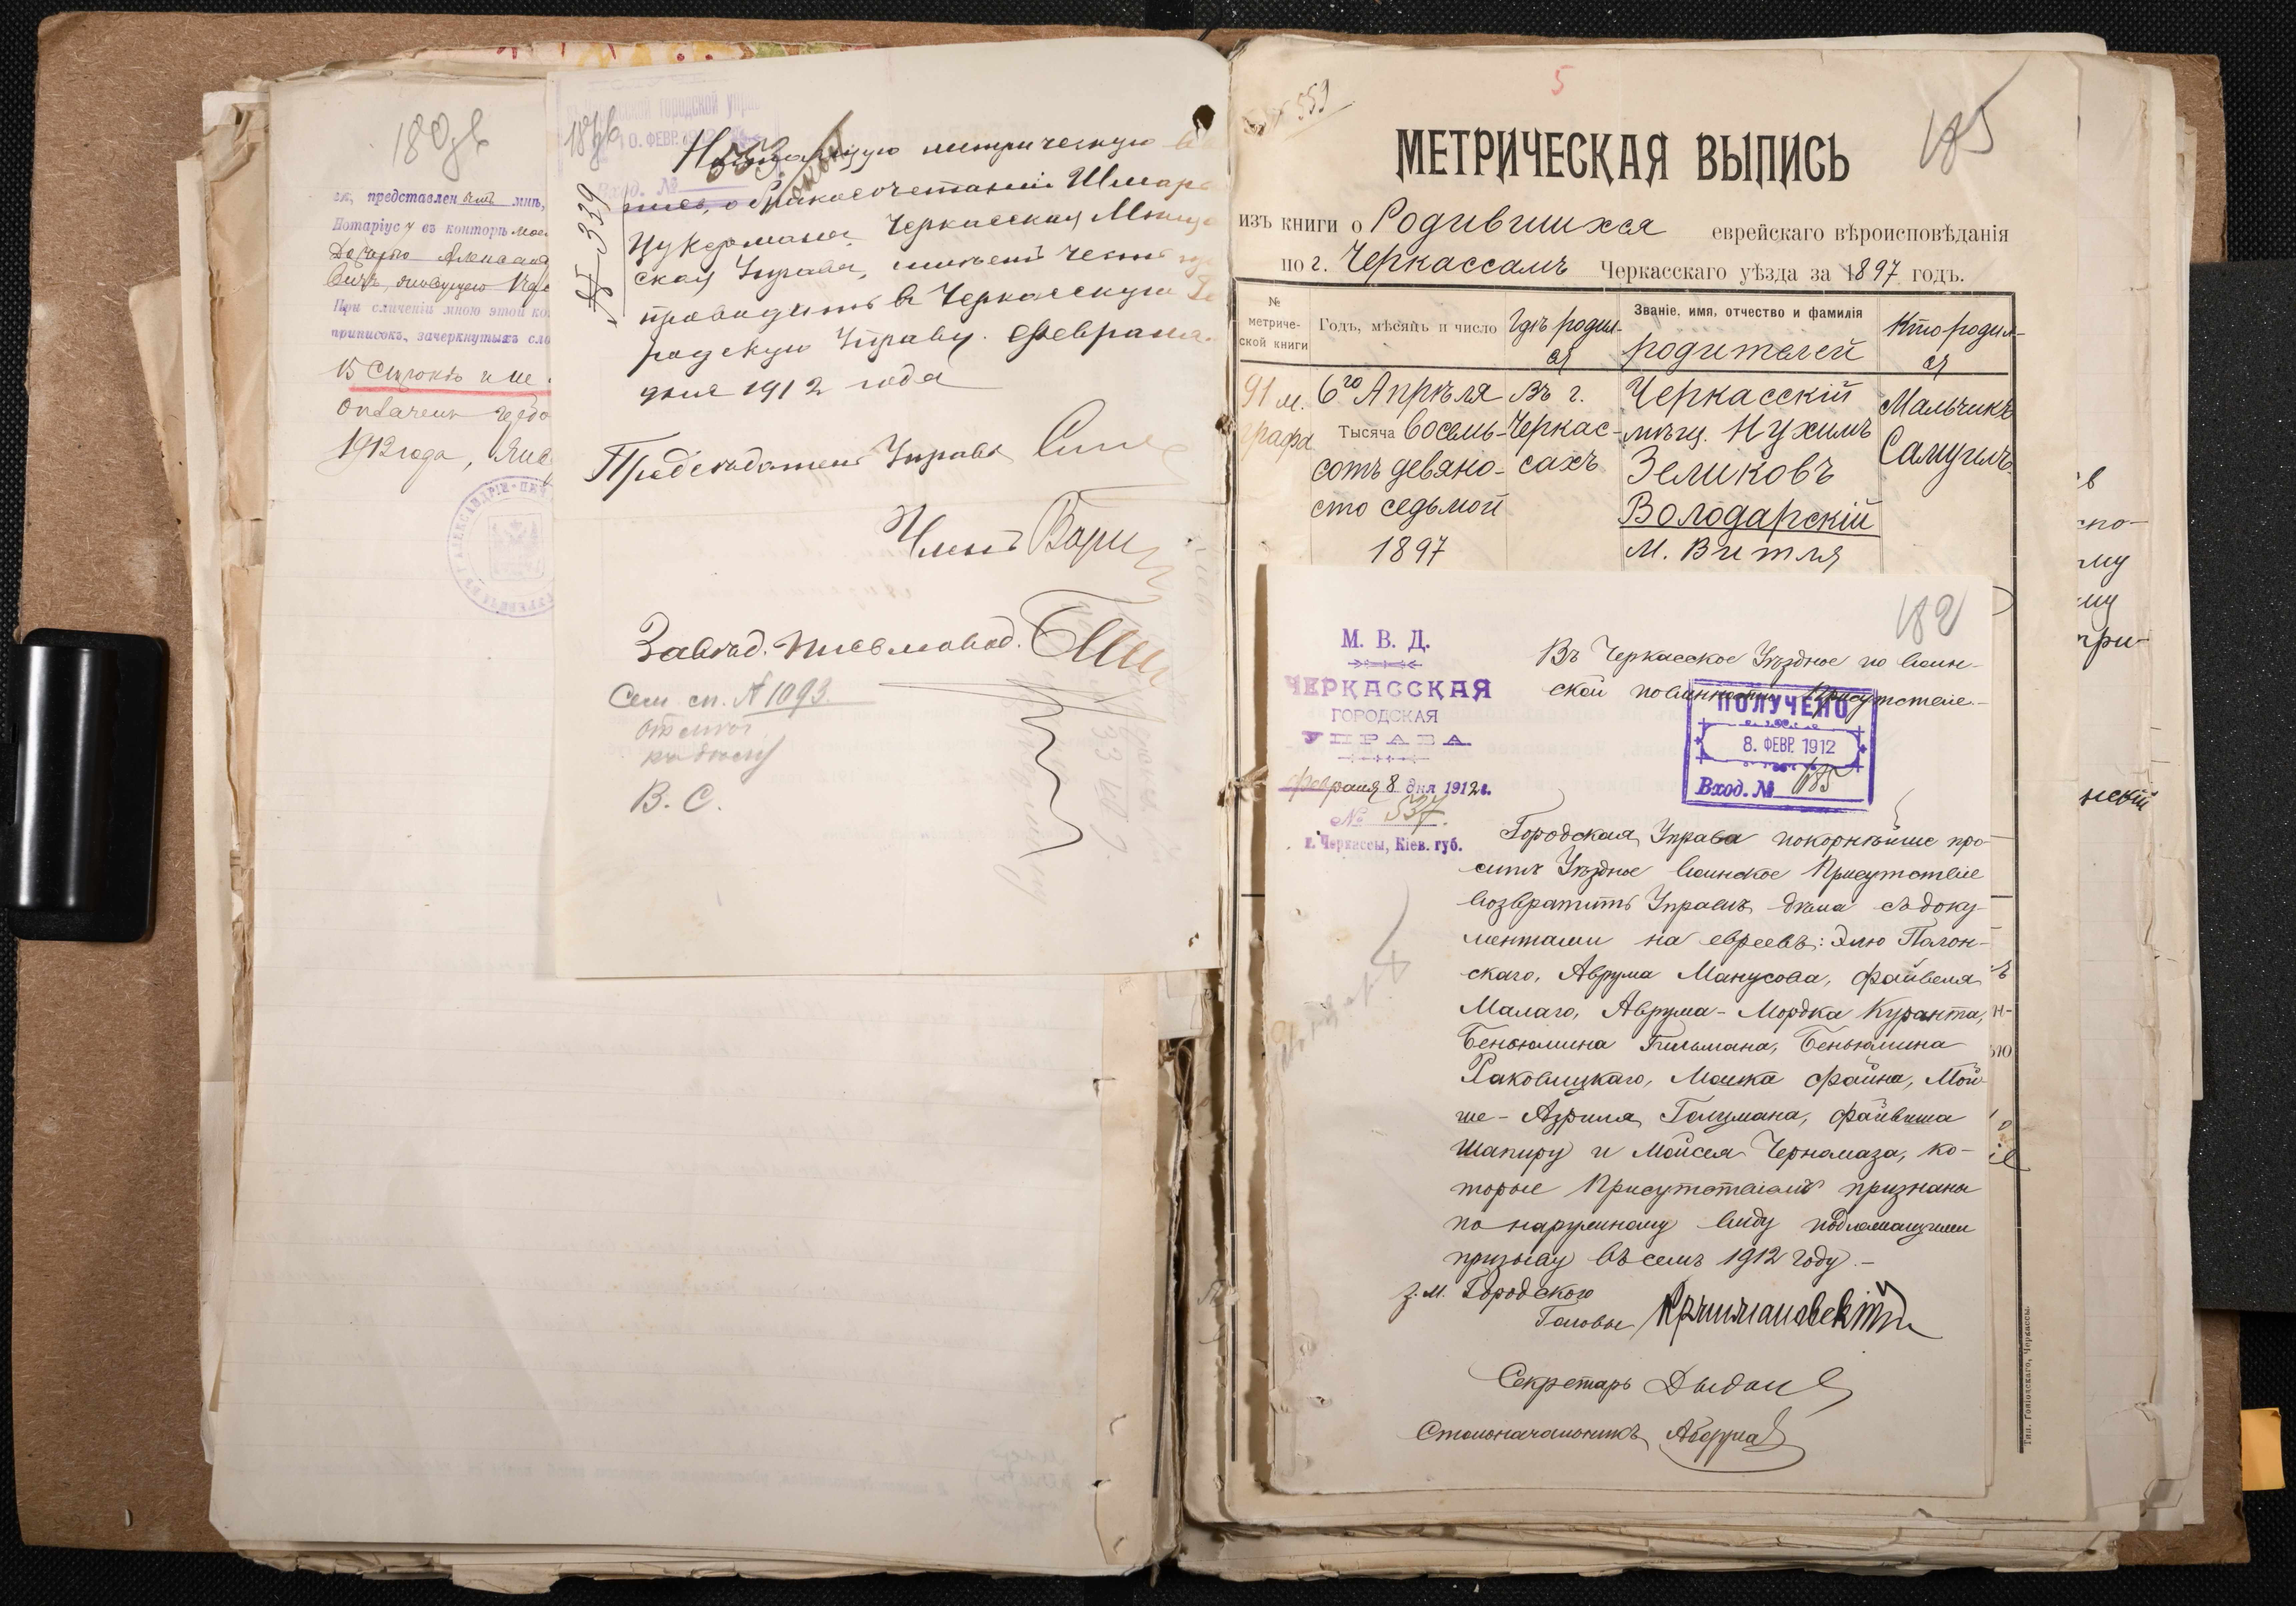 180об
ею, представленъ мнѣ,
Нотаріусу въ конторѣ моей
При сличеніи мною этой ко
приписокъ, зачеркнутыхъ сло
15 Строкъ и не
1912 года, Янв
181об
10. ФЕВР. 1912
Вход. №
553
№ 339
Настоящую метрическую вы
пись, о бракосочетаніи Шмар
Цукермана, Черкасская Мѣща
ская Управа, имѣетъ честь
проводить въ Черкасскую Го
родскую Управу. Февраля
дня 1912 года
Предсѣдатель Управы
Членъ
Завѣд. письмовод.
Сем. сп. № 1093.
В. С.
5
185
МЕТРИЧЕСКАЯ ВЫПИСЬ
изъ книги о Родившихся еврейскаго вѣроисповѣданія
по г. Черкассамъ Черкасскаго уѣзда за 1897 годъ.
№ метриче-ской книги
Годъ, мѣсяцъ и число
Гдѣ родил-ся
Званіе, имя, отчество и фамилія родителей
Кто родил-ся
91 м. графа
6го Апрѣля
Тысяча восемь-
сотъ девяно-
сто седьмой
1897
Въ г.
Черкас-
сахъ
Черкасскій
мѣщ. Нухимъ
Зеликовъ
Володарскій
М. Витля
Мальчикъ
Самуилъ
182
М. В. Д.
ЧЕРКАССКАЯ
ГОРОДСКАЯ
УПРАВА
Февраля 8 дня 1912 г.
№ 537.
г. Черкассы, Кіев. губ.
Въ Черкасское Уѣздное по воин-
ской повинности Присутствіе.
ПОЛУЧЕНО
8. ФЕВР. 1912
Вход. № 185
Городская Управа покорнѣйше про-
ситъ Уѣздное воинское Присутствіе
возвратить Управѣ дѣла съ доку-
ментами на евреевъ: Элю Погон-
скаго, Аврума Манусова, Файвеля
Малаго, Аврума-Мордка Куранта,
Беньюмина Гильмана, Беньюмина
Раковицкаго, Мошка Файна, Мой-
ше-Азриля Голцмана, Файвиша
Шапиру и Мойсея Черномаза, ко-
торые Присутствіемъ признаны
по наружному виду подлежащими
призыву въ семъ 1912 году.-
з. м. Городского
Головы
Секретарь
Столоначальникъ
Тип. Головскаго, Черкассы.